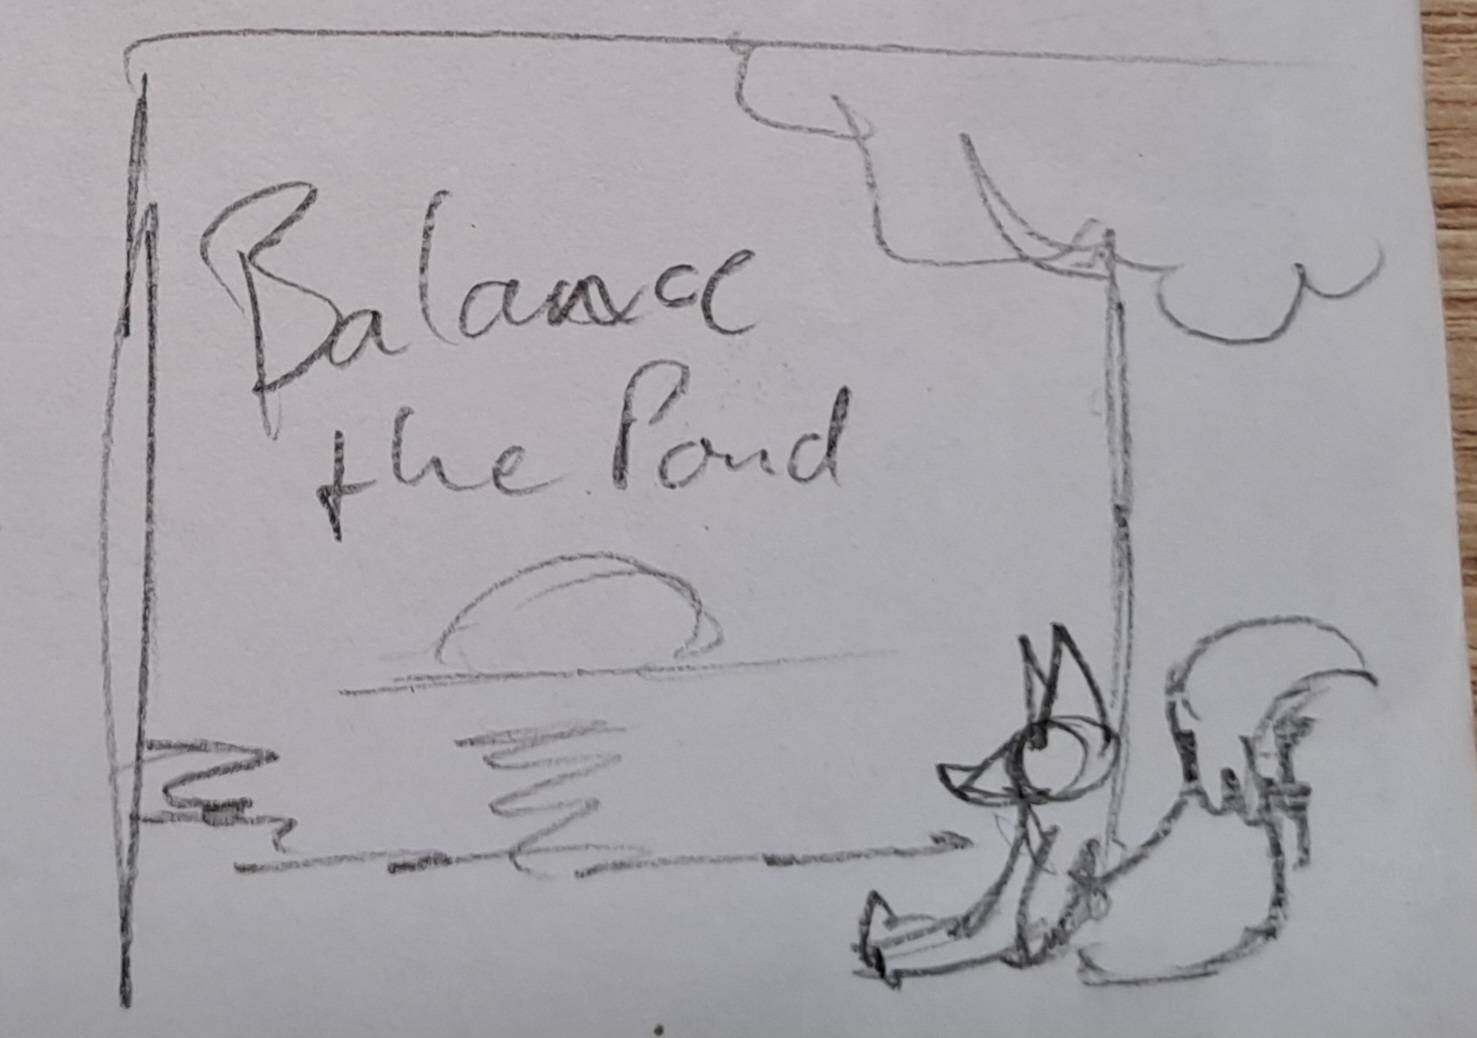 Balance
the Pond